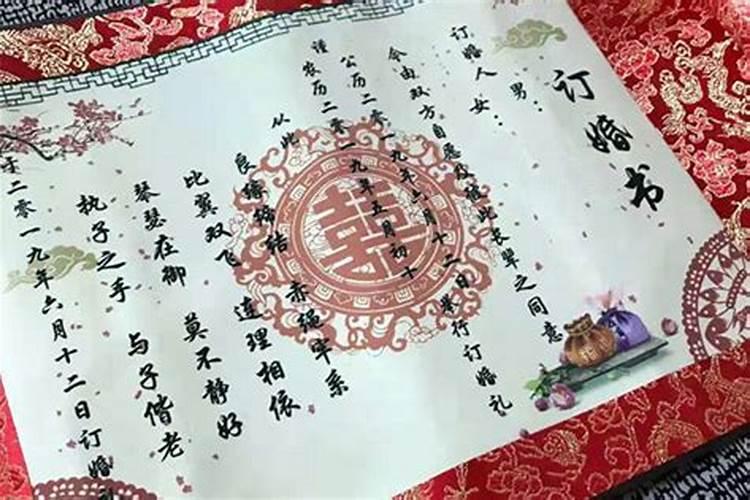 订婚书
订婚人 男:
女:
今由双方自愿及彼此长辈之同意
谨 公历二零一九年六月十二日举行订婚礼
农历二零一九年五月初十
从此 良缘缔结 赤绳牢系
比翼双飞 连理相依
琴瑟在御 莫不静好
执子之手 与子偕老
于二零一九年六月十二日订婚